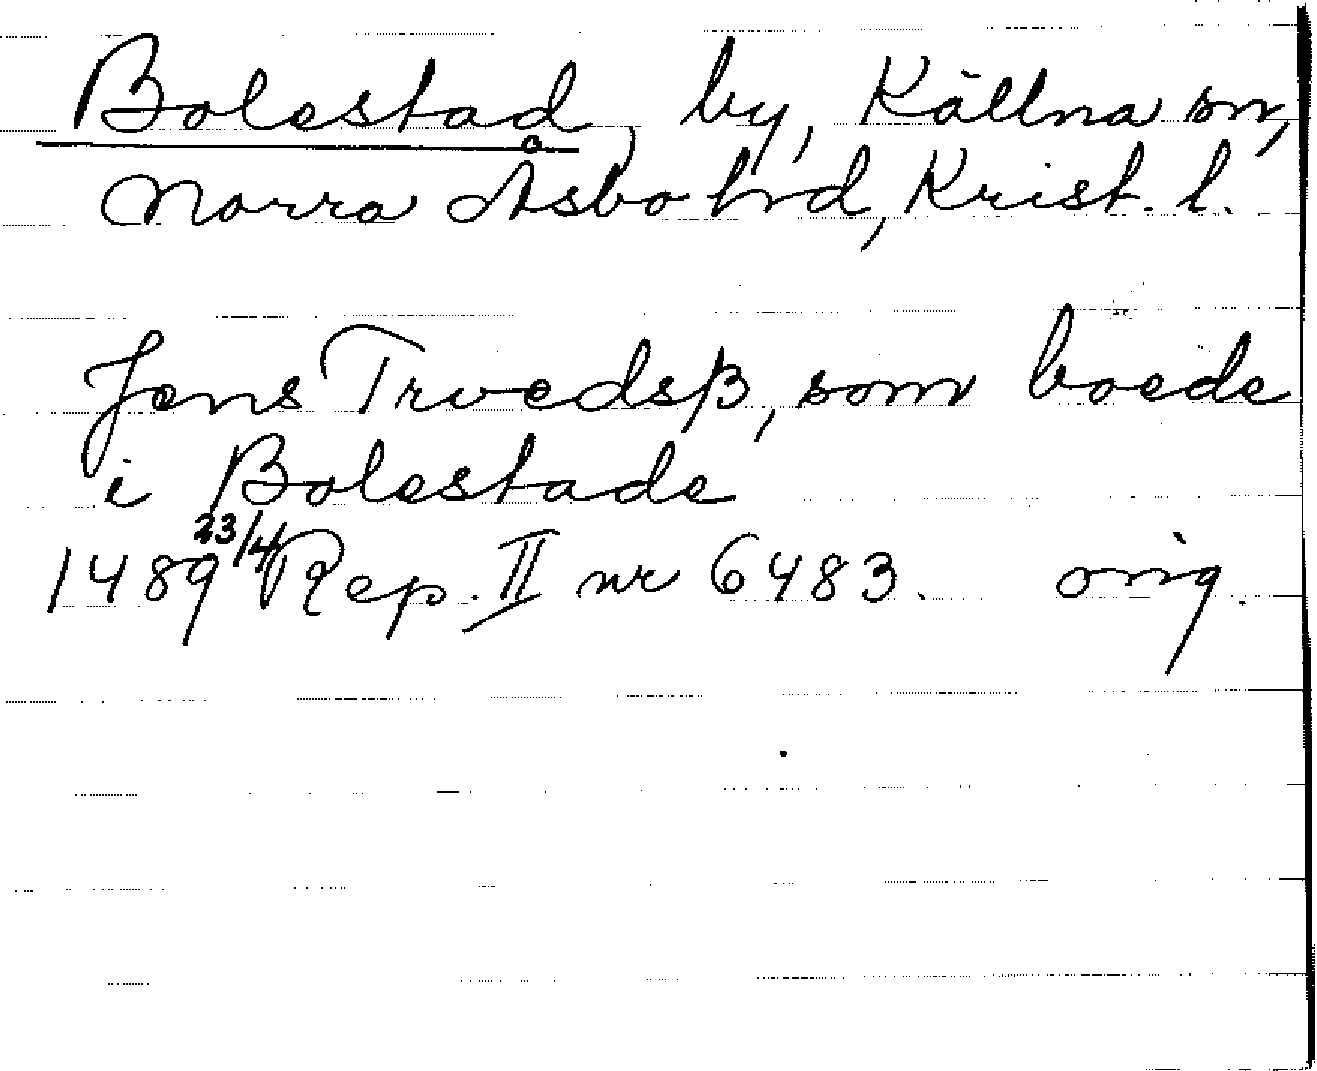 Bolestad, by, Källna sn,
Norra Åsbo hrd, Krist. l.
Jens Trwedsβ, som boede
i Bolestade
1489 23/4 Rep. II nr 6483. orig.